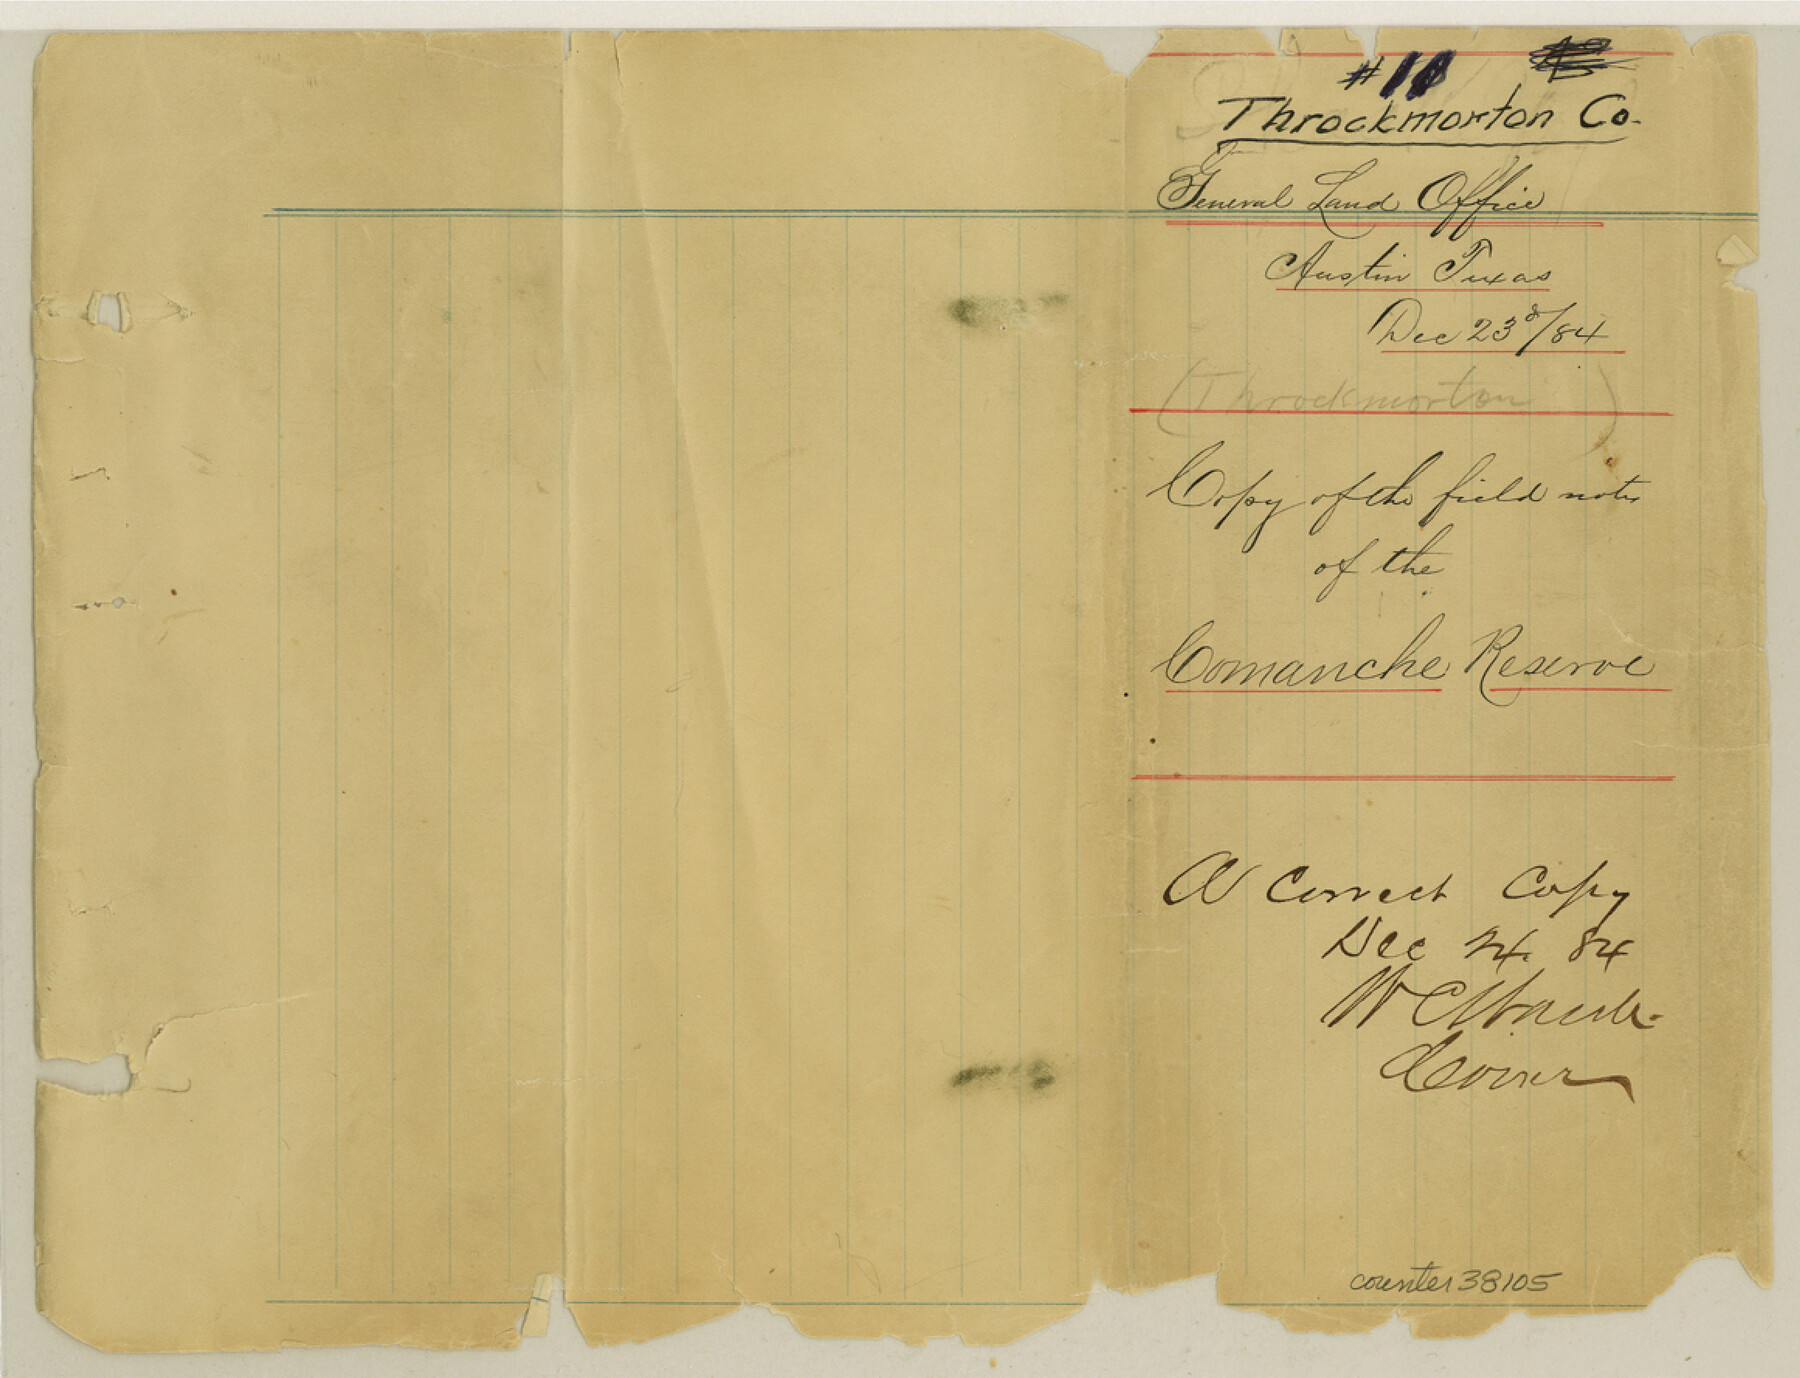 #10
Throckmorton Co.
General Land Office
Austin Texas
Dec 23d/84
(Throckmorton)
Copy of the field notes
of the
Comanche Reserve
A Correct Copy
Dec 24. 84
W C
counter 38105